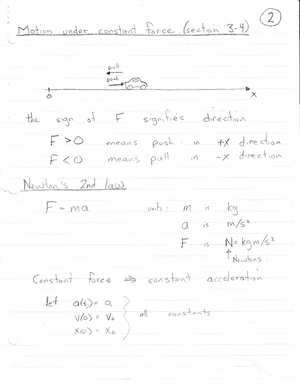 Motion under constant force (section 3-4)
2
pull
push
0
x
the sign of F signifies direction
F > 0 means push in +x direction
F < 0 means pull in -x direction
Newton's 2nd law
F = ma units: m is kg
a is m/s²
F is N = kg m/s²
↑
Newtons
Constant force ⇒ constant acceleration
let a(t) = a
v(0) = v₀
x(0) = x₀
all constants